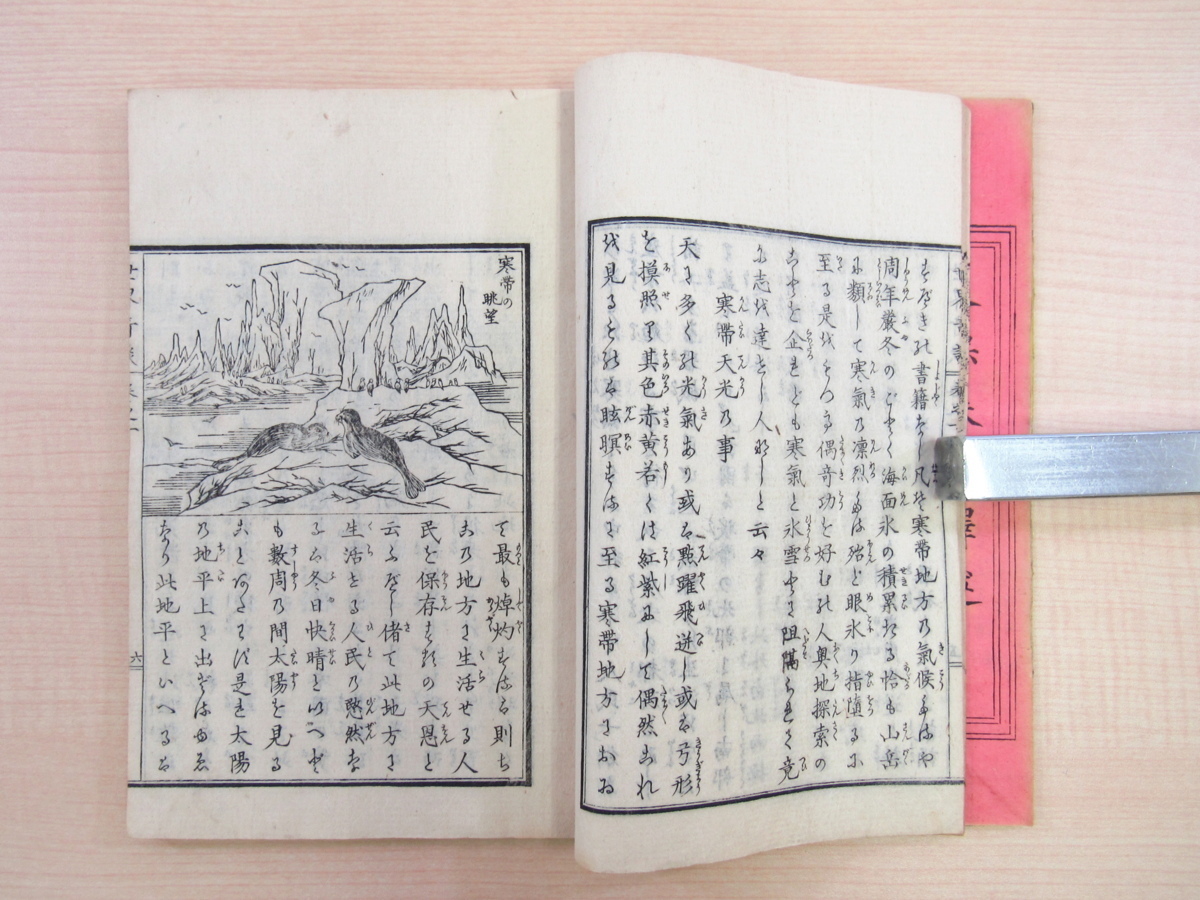 書籍なし凡そ寒帶地方乃氣候たるや
周年嚴冬のごとく海面氷の積累する恰も山岳
に類して寒氣乃凛烈なは殆と眼氷り指墮るに
至る是故をもつて偶奇功を好むの人奥地探索の
ことを企れども寒氣と氷雪とに阻隔られて竟
に志を達せし人なしと云々
寒帶天光乃事
天に多くの光氣あり或は點躍飛迸し或は弓形
を摸照て其色赤黄若くは紅紫にして偶然これ
を見るときは眩瞑するに至る寒帶地方におゐ
寒帶の
眺望
て最も焯灼するは則ち
此乃地方に生活せる人
民を保存するの天恩と
云ふべし偖て此地方に
生活する人民乃愍然な
るは冬日快晴といへど
も數周乃間太陽を見る
ことあたはず是は太陽
乃地平上に出ざるゆゑ
なり此地平といへるは
六